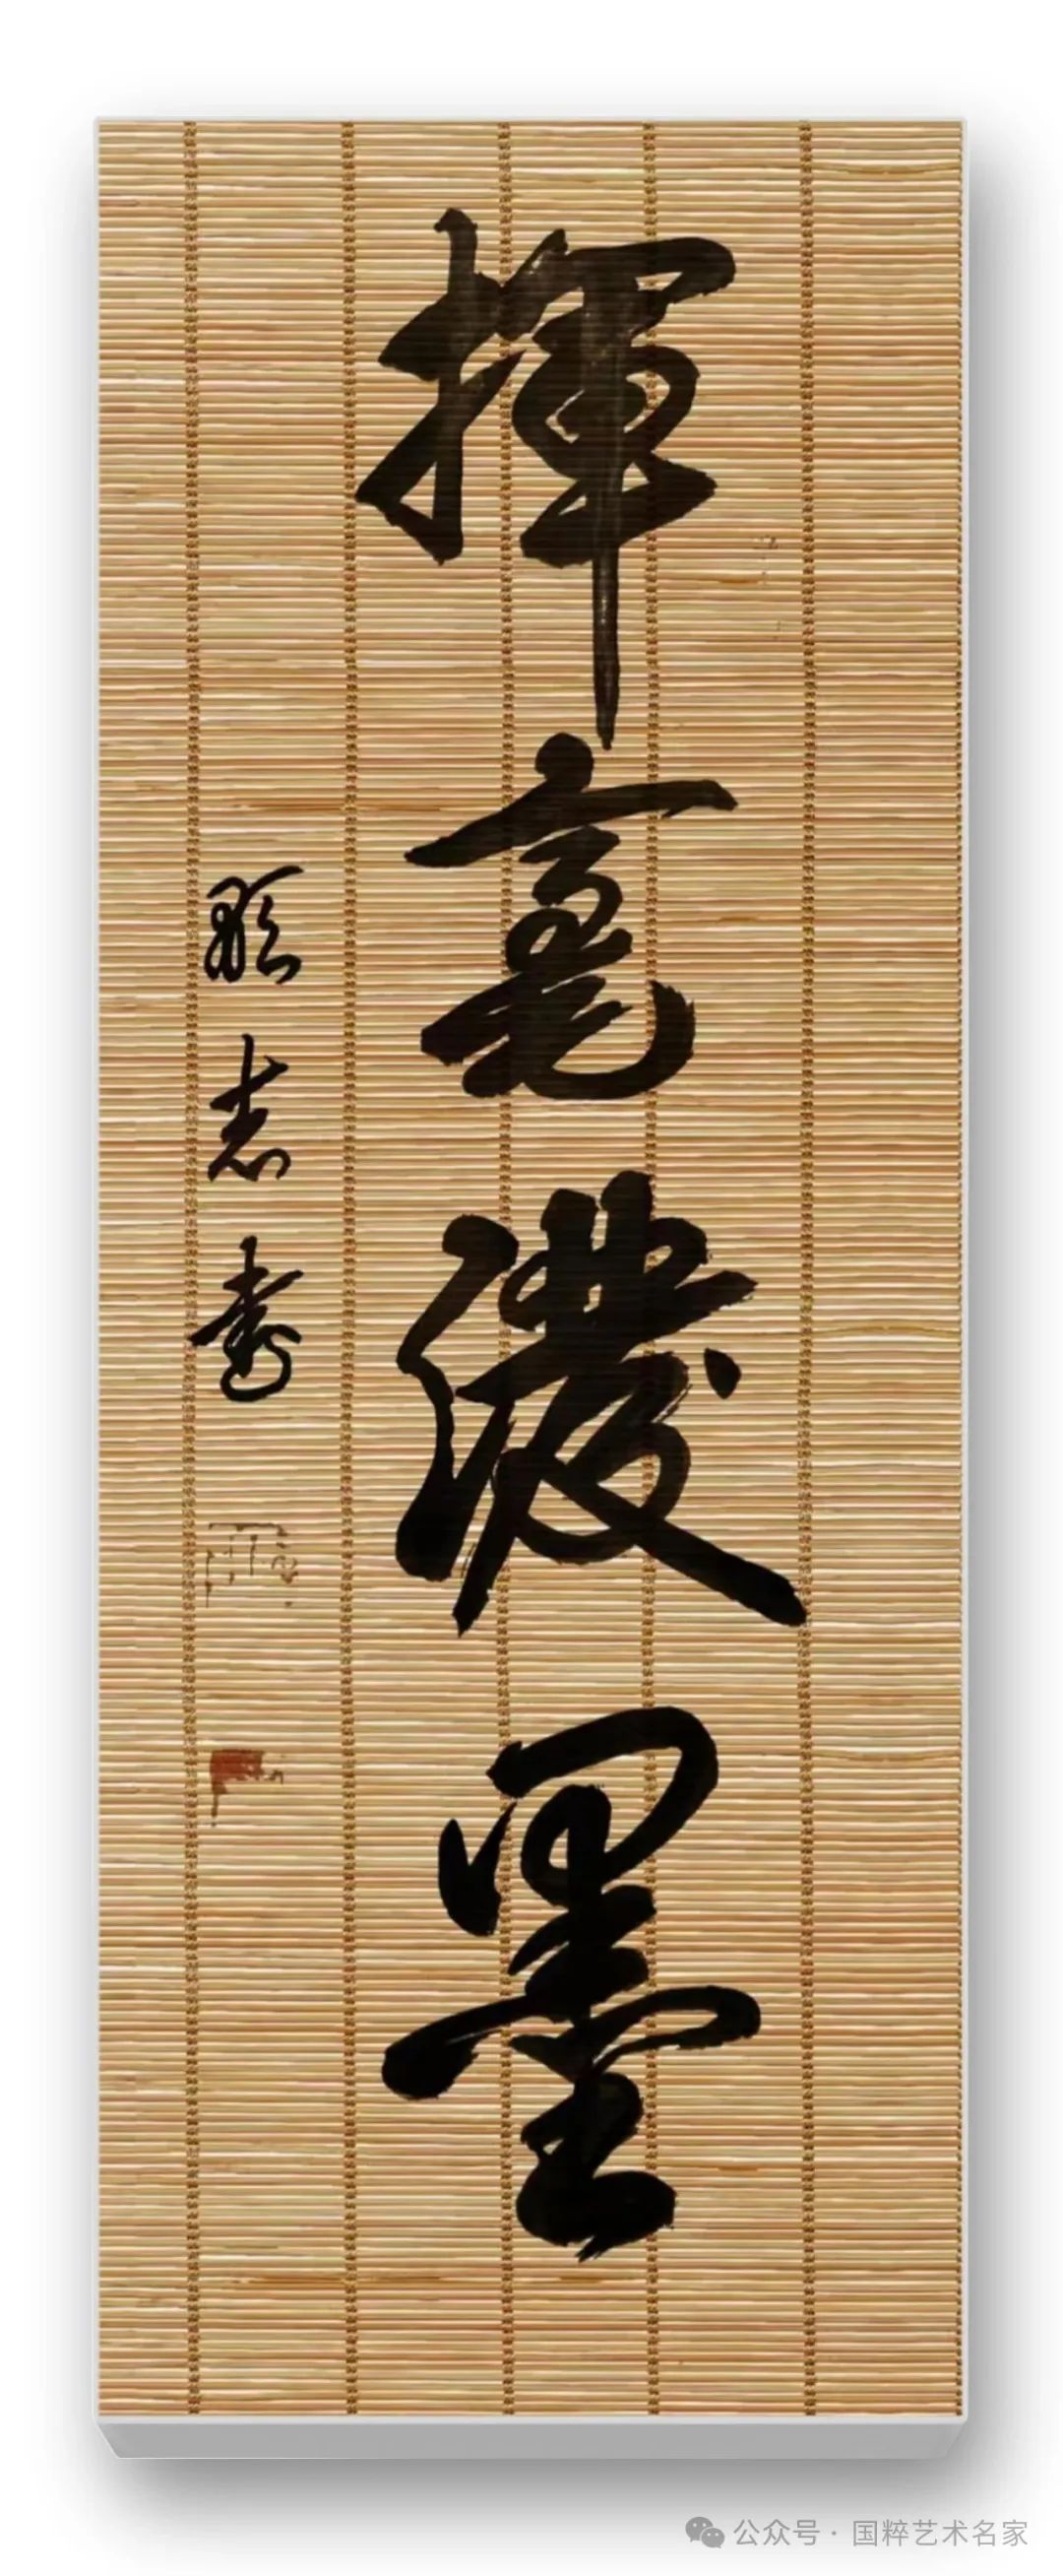 揮毫潑墨
志
公众号 · 国粹艺术名家